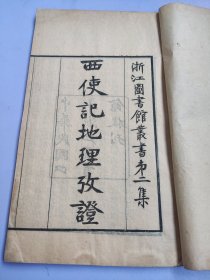 浙江圖書館叢書第二集
西使記地理攷證